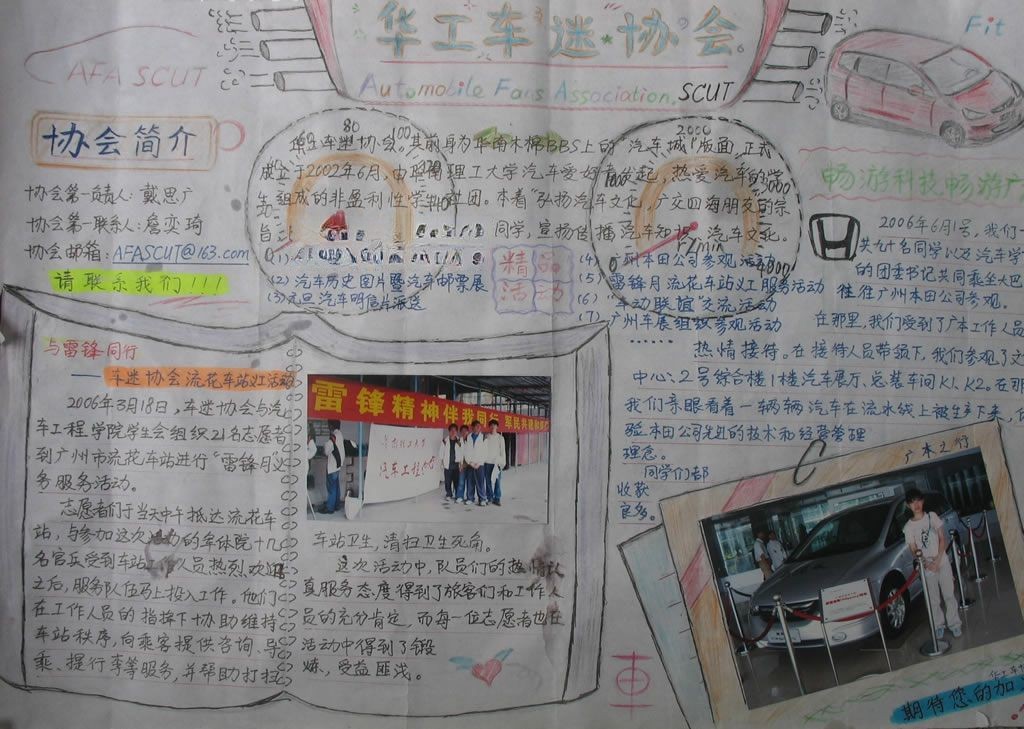 华工车迷协会
Automobile Fans Association, SCUT
AFA SCUT
Fit
协会简介
协会第一负责人：戴思广
协会第一联系人：詹奕琦
协会邮箱：AFASCUT@163.com
请联系我们!!!
华工车迷协会。其前身为华南木棉BBS上的"汽车城"版面，正式
成立于2002年6月，由华南理工大学汽车爱好者发起，热爱汽车的学
生组成的非盈利性学生社团。本着"弘扬汽车文化，广交四海朋友的宗
旨
同学，宣扬传播汽车知识，汽车文化。
80
100
2000
3000
4000
r/min
精品
活动
(1)
(2) 汽车历史图片暨汽车邮票展
(3) 元旦汽车明信片派送
(4) 广州本田公司参观活动
(5) 雷锋月流花车站义工服务活动
(6) "车动联谊"交流活动
(7) 广州车展组织参观活动
......
畅游科技畅游广
2006年6月1号，我们一
共九十名同学以及汽车学
的团委书记共同乘坐大巴
往广州本田公司参观。
在那里，我们受到了广本工作人员
热情接待。在接待人员带领下，我们参观了文
中心：2号综合楼1楼汽车展厅、总装车间K1、K2。在那
我们亲眼看着一辆辆汽车在流水线上被生产下来，体
验本田公司先进的技术和经营管理
理念。
同学们都
收获
良多。
与雷锋同行
——车迷协会流花车站义工活动
2006年3月18日，车迷协会与汽
车工程学院学生会组织21名志愿者
到广州市流花车站进行"雷锋月"义
务服务活动。
志愿者们于当天中午抵达流花车
站，与参加这次活动的军体院十几
名官兵受到车站工作人员热烈欢迎
之后，服务队伍马上投入工作。他们
在工作人员的指挥下协助维持
车站秩序，向乘客提供咨询、导
乘、提行李等服务，并帮助打扫
雷锋精神伴我同行
军民共建和谐
汽车工程学院
车站卫生，清扫卫生死角。
这次活动中，队员们的热情认
真服务态度得到了旅客们和工作人
员的充分肯定，而每一位志愿者也在
活动中得到了锻
炼，受益匪浅。
車
广本之行
期待您的加